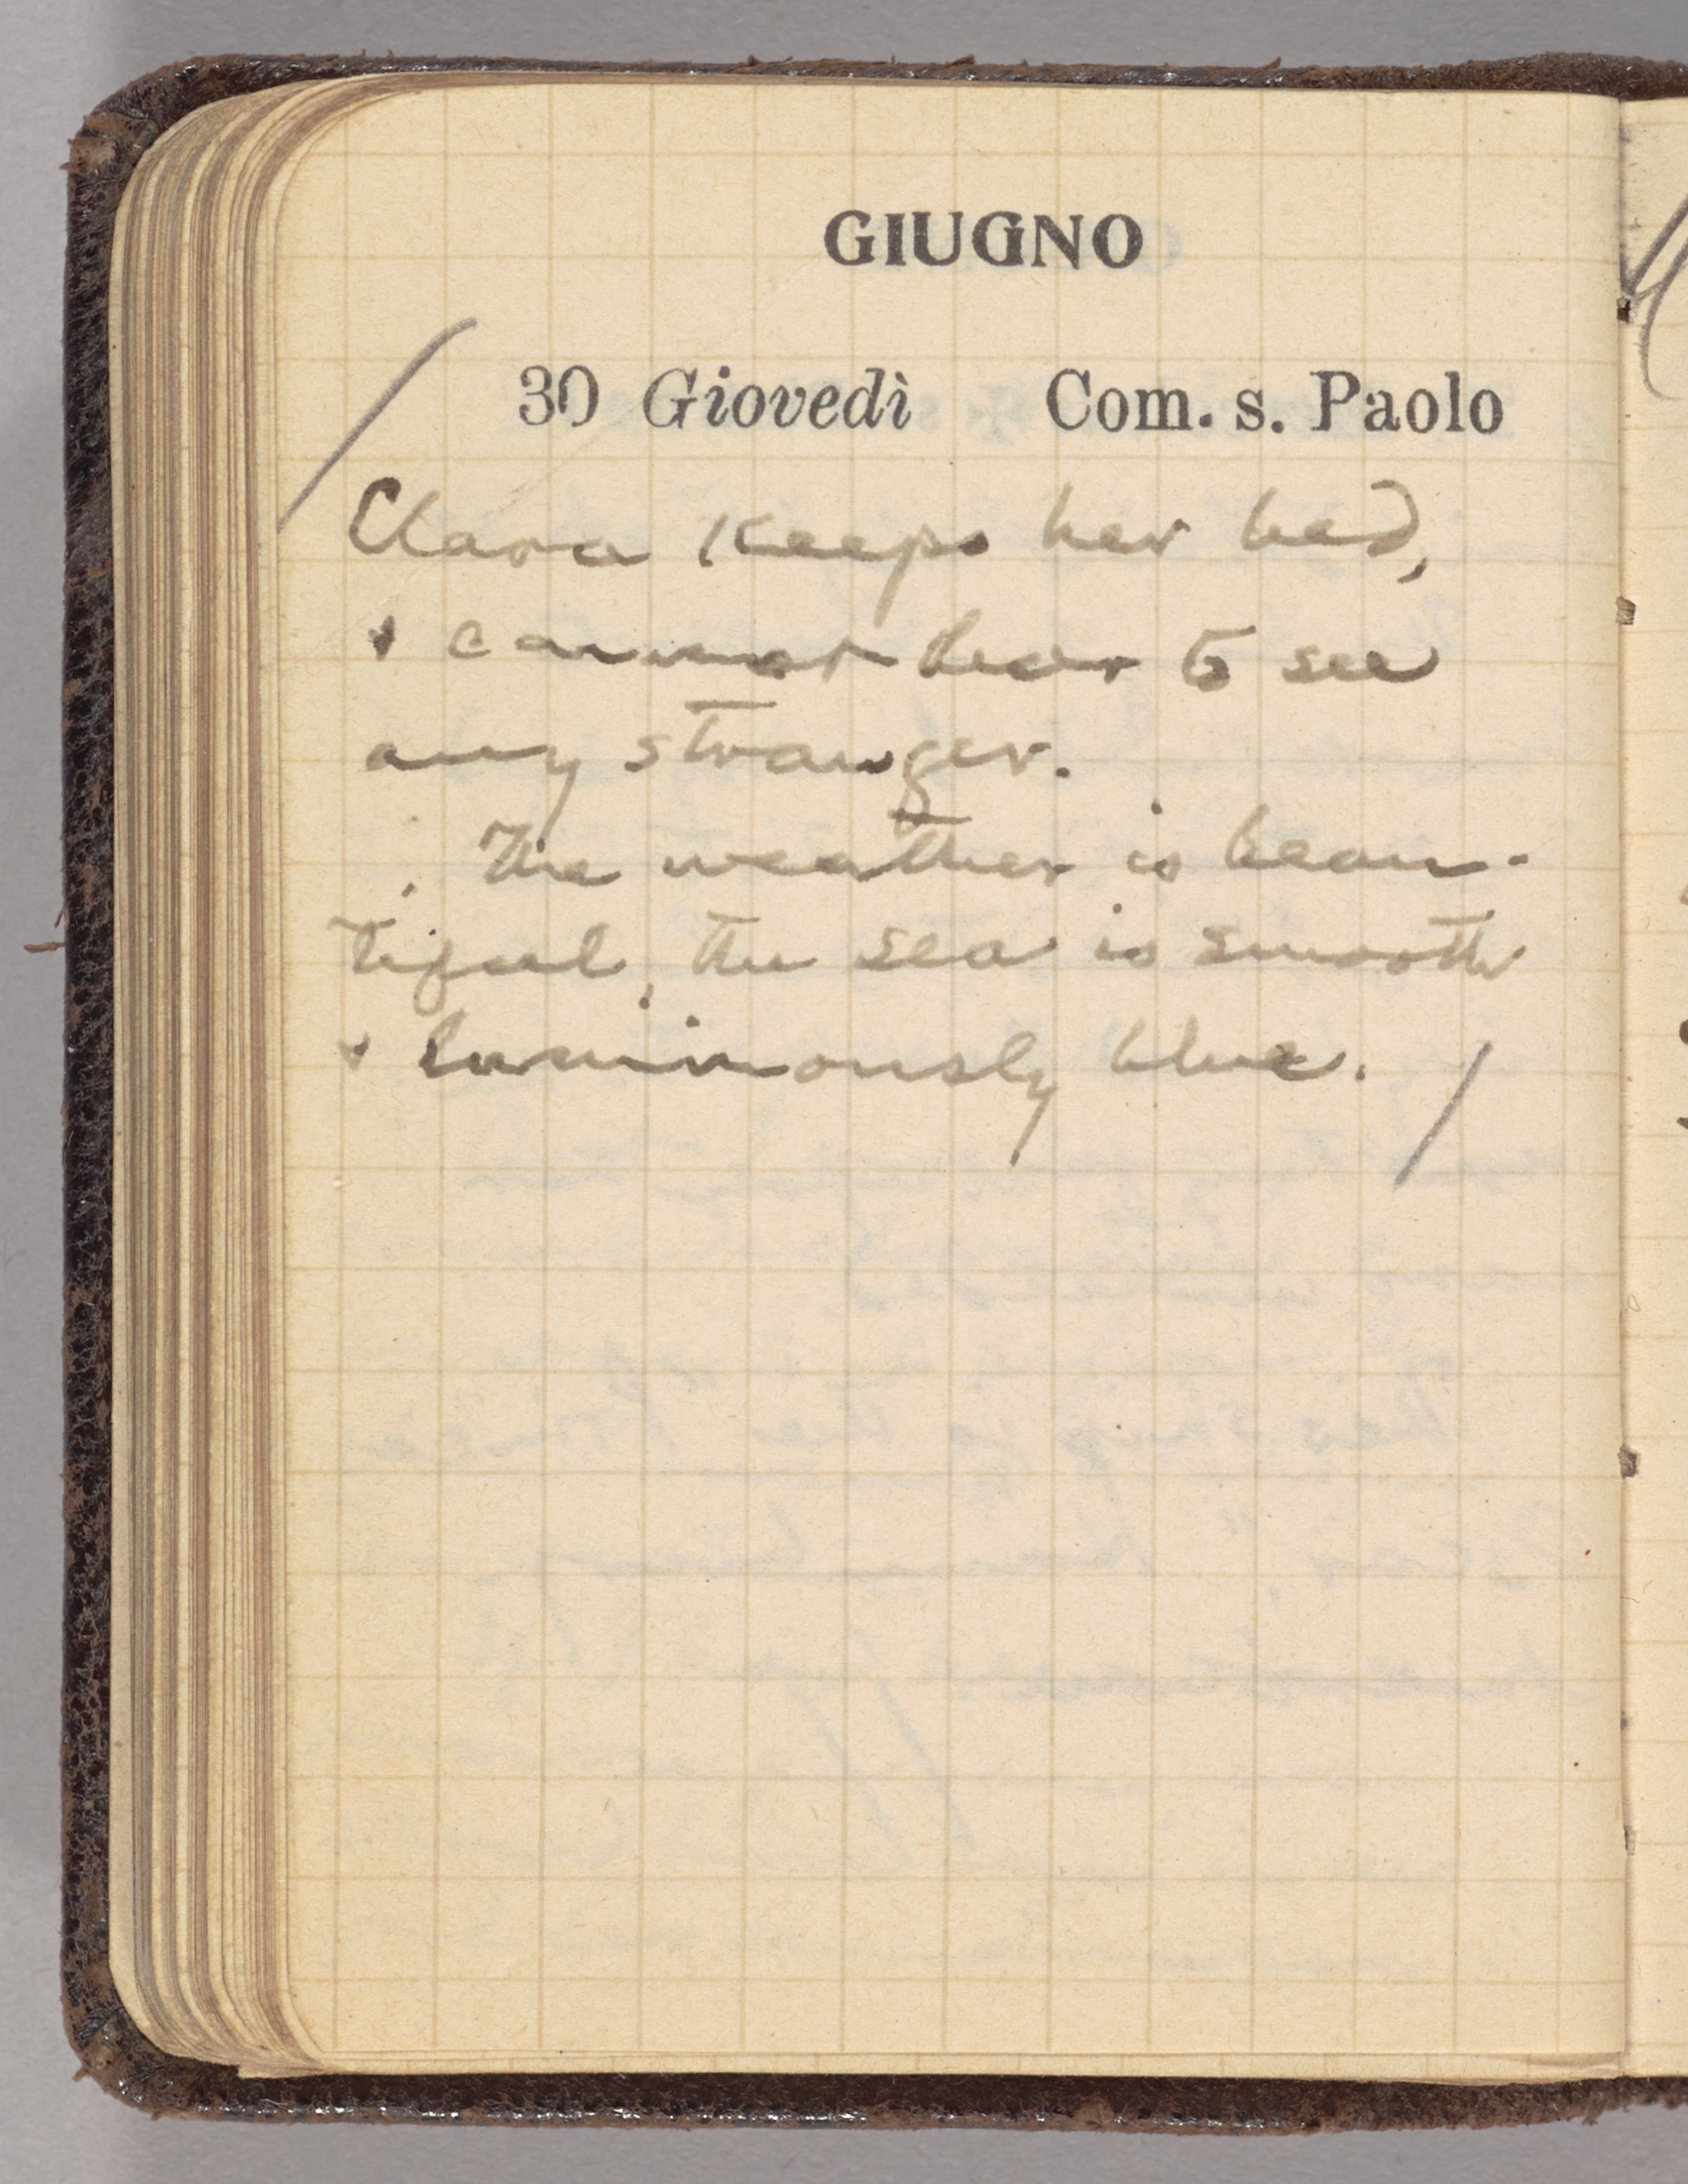 GIUGNO
30 Giovedì Com. s. Paolo
Clara keeps her bed,
& cannot bear to see
any stranger.
The weather is beau-
tiful, the sea is smooth
& luminously blue.